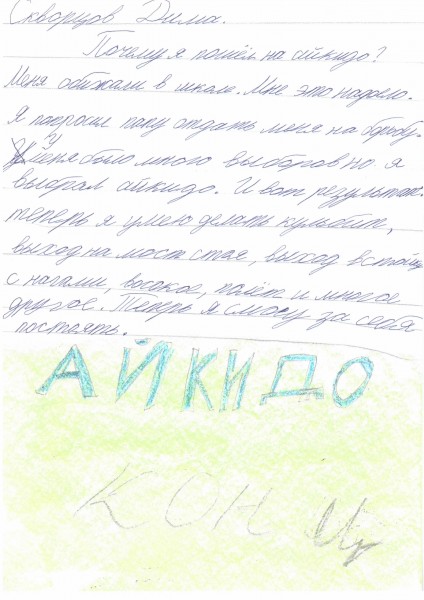 Скворцов Дима.
Почему я пошёл на айкидо?
Меня обижали в школе. Мне это надоело.
Я попросил папу отдать меня на борьбу.
У меня было много выборов но я
выбрал айкидо. И вот результат:
теперь я умею делать кульбит,
выход на мост стоя, выход в стойку
с ногами, высокое, полёт и многое
другое. Теперь я смогу за себя
постоять.
АЙКИДО
КОНЕЦ